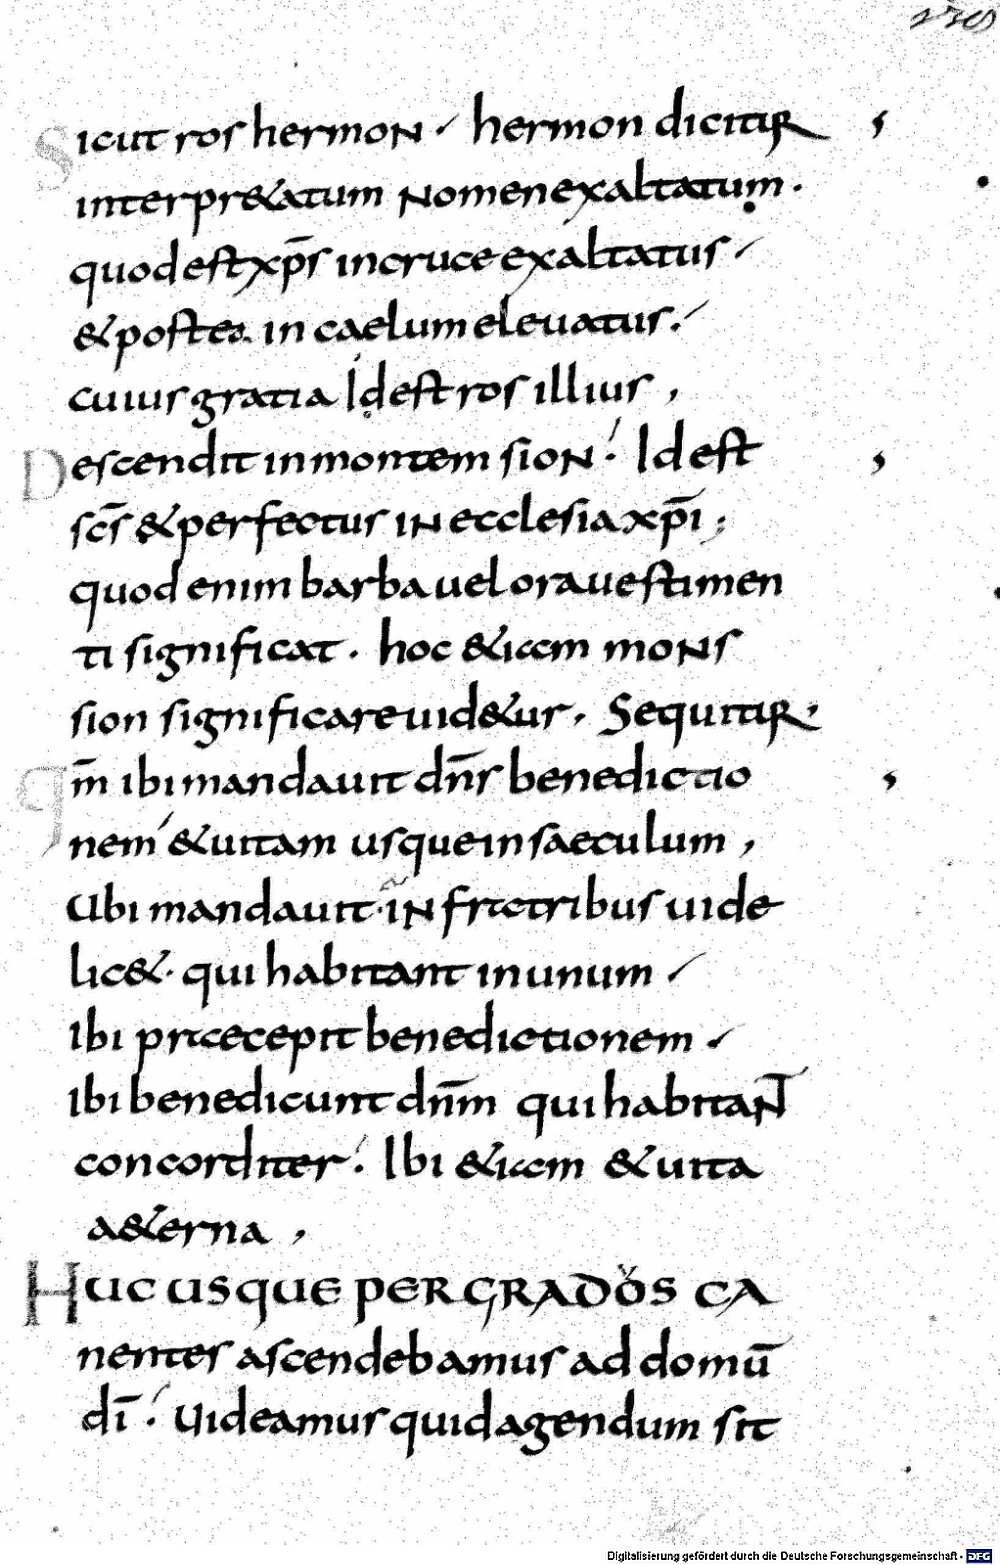 230
Sicut ros hermon / hermon dicitur ,
interpr&atum nomen exaltatum .
quod est xp̄s in cruce exaltatus /
& postea in caelum eleuatus ./
cuius gratia Idest ros illius ,
Descendit in montem sion ! Idest ,
sc̄s & perfectus in ecclesia xp̄i ;
quod enim barba uel ora uestimen
ti significat . hoc &iam mons
sion significare uid&ur . Sequitur .
Qm̄ ibi mandauit dn̄s benedictio ,
nem & uitam usque in saeculum ,
Ubi mandauit . in fratribus uide
lic& . qui habitant in unum /
Ibi praecepit benedictionem /
Ibi benedicunt dn̄m qui habitaN̄
concorditer ! Ibi &iam & uita
a&erna ,
HUC USQUE PER GRADŏS CA
nentes ascendebamus ad domū
dī ! Uideamus quid agendum sit
Digitalisierung gefördert durch die Deutsche Forschungsgemeinschaft - DFG